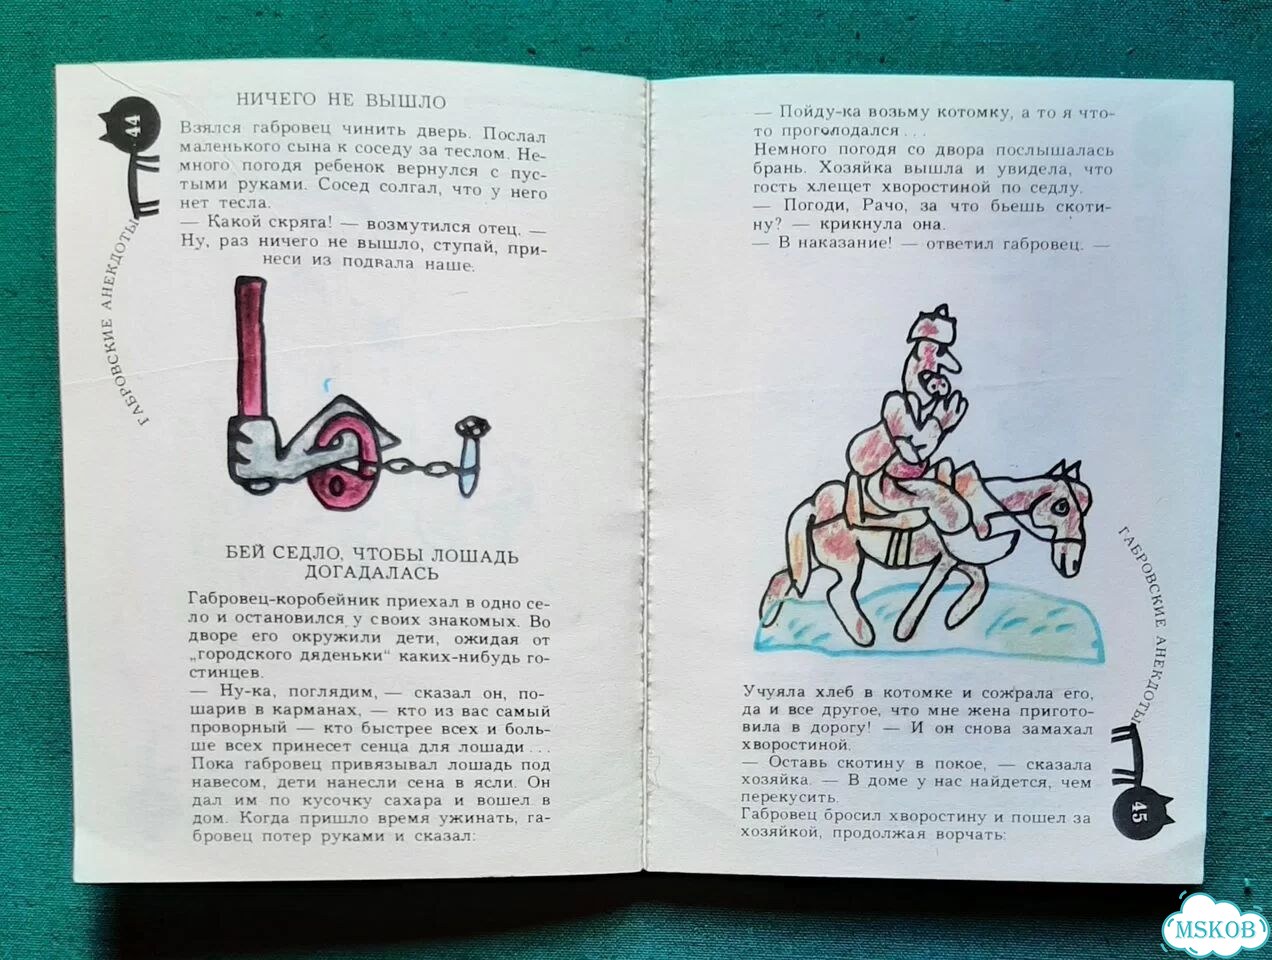 НИЧЕГО НЕ ВЫШЛО
Взялся габровец чинить дверь. Послал
маленького сына к соседу за теслом. Не-
много погодя ребенок вернулся с пус-
тыми руками. Сосед солгал, что у него
нет тесла.
— Какой скряга! — возмутился отец. —
Ну, раз ничего не вышло, ступай, при-
неси из подвала наше.
БЕЙ СЕДЛО, ЧТОБЫ ЛОШАДЬ
ДОГАДАЛАСЬ
Габровец-коробейник приехал в одно се-
ло и остановился у своих знакомых. Во
дворе его окружили дети, ожидая от
„городского дяденьки“ каких-нибудь го-
стинцев.
— Ну-ка, поглядим, — сказал он, по-
шарив в карманах, — кто из вас самый
проворный — кто быстрее всех и боль-
ше всех принесет сенца для лошади...
Пока габровец привязывал лошадь под
навесом, дети нанесли сена в ясли. Он
дал им по кусочку сахара и вошел в
дом. Когда пришло время ужинать, га-
бровец потер руками и сказал:
44
ГАБРОВСКИЕ АНЕКДОТЫ
— Пойду-ка возьму котомку, а то я что-
то проголодался...
Немного погодя со двора послышалась
брань. Хозяйка вышла и увидела, что
гость хлещет хворостиной по седлу.
— Погоди, Рачо, за что бьешь скоти-
ну? — крикнула она.
— В наказание! — ответил габровец. —
Учуяла хлеб в котомке и сожрала его,
да и все другое, что мне жена пригото-
вила в дорогу! — И он снова замахал
хворостиной.
— Оставь скотину в покое, — сказала
хозяйка. — В доме у нас найдется, чем
перекусить.
Габровец бросил хворостину и пошел за
хозяйкой, продолжая ворчать:
ГАБРОВСКИЕ АНЕКДОТЫ
45
MSKOB